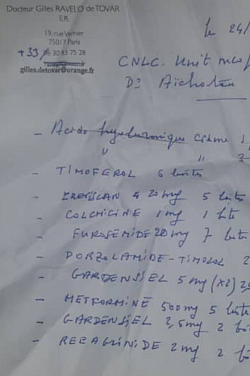 Docteur Gilles RAVELO de TOVAR
E.R.
19, rue Vernier
75017 Paris
+33/ 06 30 83 75 28
gilles.detovar@orange.fr
le 24/
CNLC. Unit
Dr
- Acide hyaluronique crème 1
" "
- TIMOFEROL 6 btes
- 20mg 5 btes
- COLCHICINE 1mg 1 bte
- FUROSEMIDE 20mg 7 btes
- DORZOLAMIDE-TIMOLOL 2
- GARDENSIEL 5mg (x2)
- METFORMINE 500mg 5 btes
- GARDENSIEL 2,5mg 2 bt
- REPAGLINIDE 2mg 2 bt